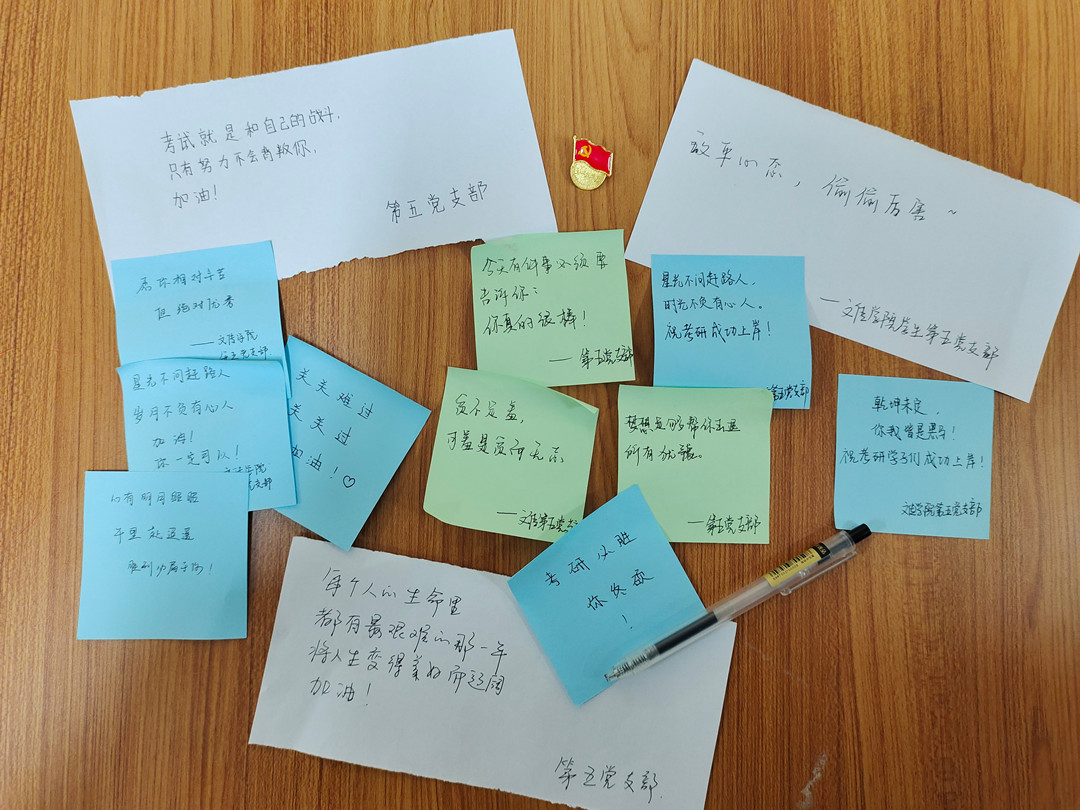 考试就是和自己的战斗，
只有努力不会背叛你，
加油！
第五党支部
放平心态，偷偷厉害~
——文传学院学生第五党支部
愿你相对辛苦
但绝对优秀
——文传学院
第五党支部
今天有件事必须要
告诉你：
你真的很棒！
——第五党支部
星光不问赶路人，
时光不负有心人。
祝考研成功上岸！
第五党支部
星光不问赶路人
岁月不负有心人
加油！
你一定可以！
文传学院
党支部
关关难过
关关过
加油！♡
贫不足羞，
可羞是贫而无志
——文传第五党支
梦想足够帮你击退
所有
——第五党支部
乾坤未定，
你我皆是黑马！
祝考研学子们成功上岸！
文传学院第五党支部
心有明月昭昭
千里赴迢迢
考研必胜
你必硕
！
每个人的生命里
都有最艰难的那一年
将人生变得美好而辽阔
加油！
第五党支部